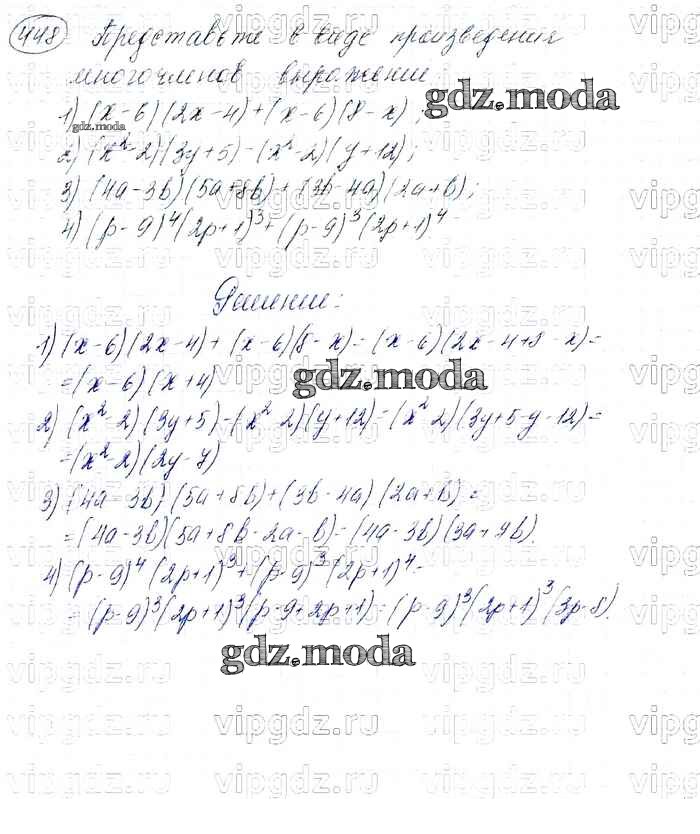 448 Представьте в виде произведения
многочленов выражение:
1) (x-6)(2x-4)+(x-6)(8-x);
gdz.moda
gdz.moda
2) (x²-2)(3y+5)-(x²-2)(y+12);
3) (4a-3b)(5a+8b)+(3b-4a)(2a+b);
4) (p-9)⁴(2p+1)³+(p-9)³(2p+1)⁴
Решение:
1) (x-6)(2x-4)+(x-6)(8-x)=(x-6)(2x-4+8-x)=
=(x-6)(x+4)
gdz.moda
2) (x²-2)(3y+5)-(x²-2)(y+12)=(x²-2)(3y+5-y-12)=
=(x²-2)(2y-7)
3) (4a-3b)(5a+8b)+(3b-4a)(2a+b)=
=(4a-3b)(5a+8b-2a-b)=(4a-3b)(3a+7b).
4) (p-9)⁴(2p+1)³+(p-9)³(2p+1)⁴=
=(p-9)³(2p+1)³(p-9+2p+1)=(p-9)³(2p+1)³(3p-8).
gdz.moda
vipgdz.ru vipgdz.ru vipgdz.ru